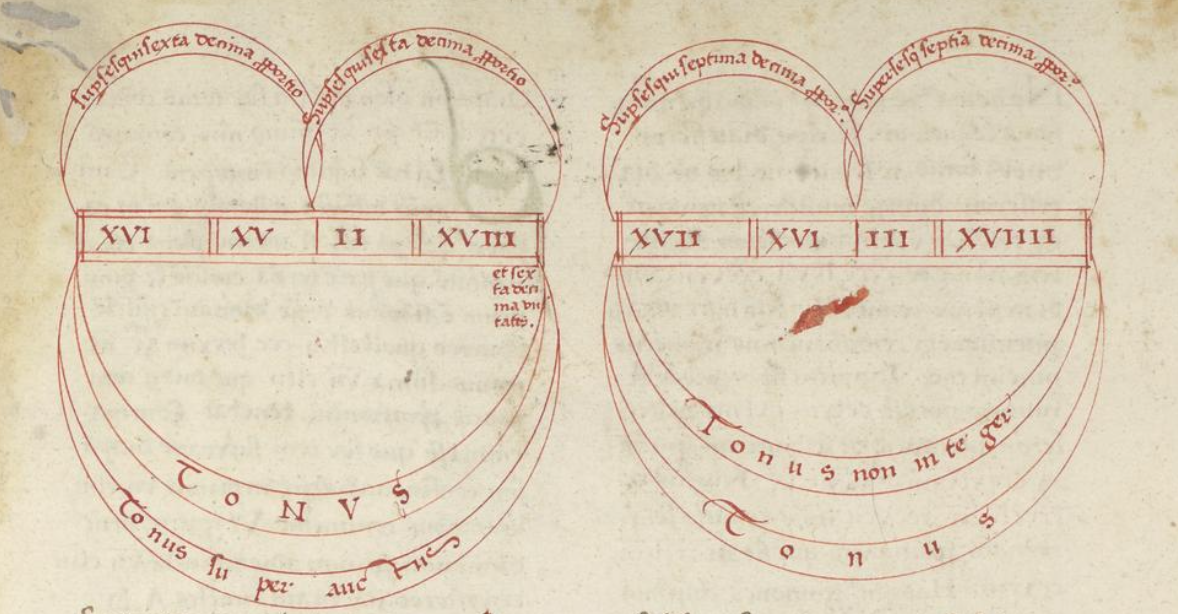 supsesquisexta decima pportio
supsesquisexta decima pportio
XVI XV II XVIII
et sex
ta deci
ma uni
tatis.
TONVS
Tonus su per auctus
supsesqui septima decima ppor.
supersesq septia decima ppor.
XVII XVI III XVIIII
Tonus non in te ger
Tonus